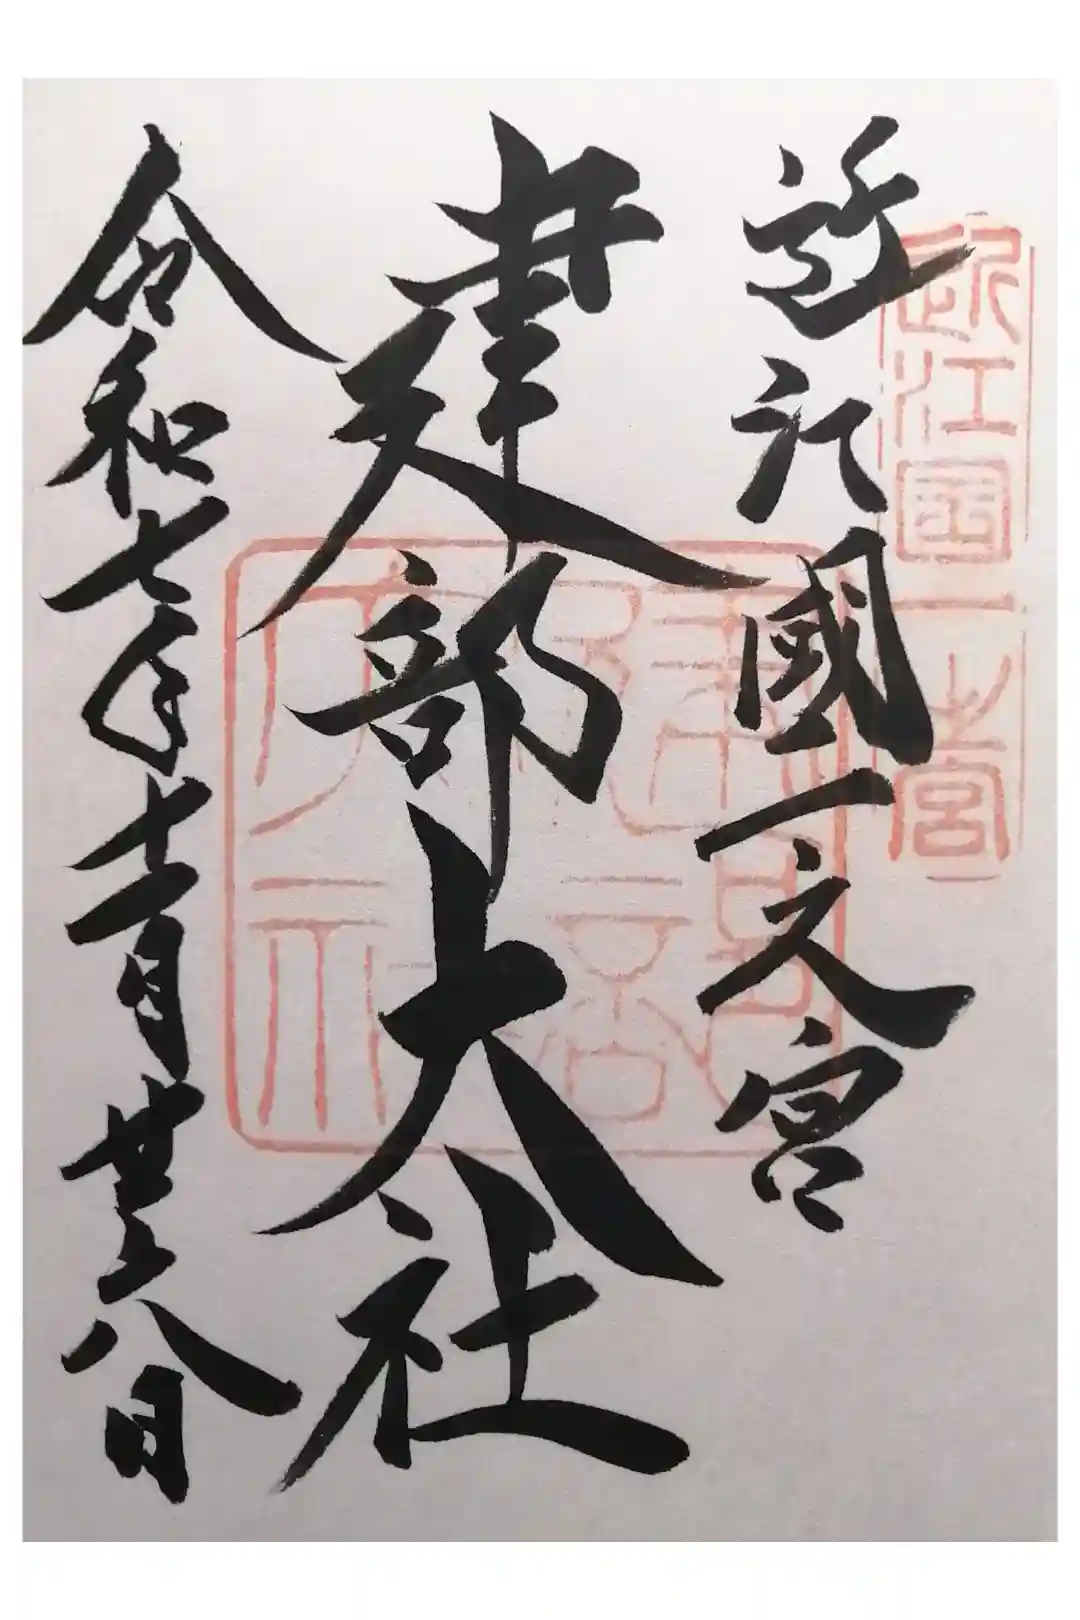 近江國一之宮
近江國一之宮
建部大社
建部大社
令和七年十一月廿六日